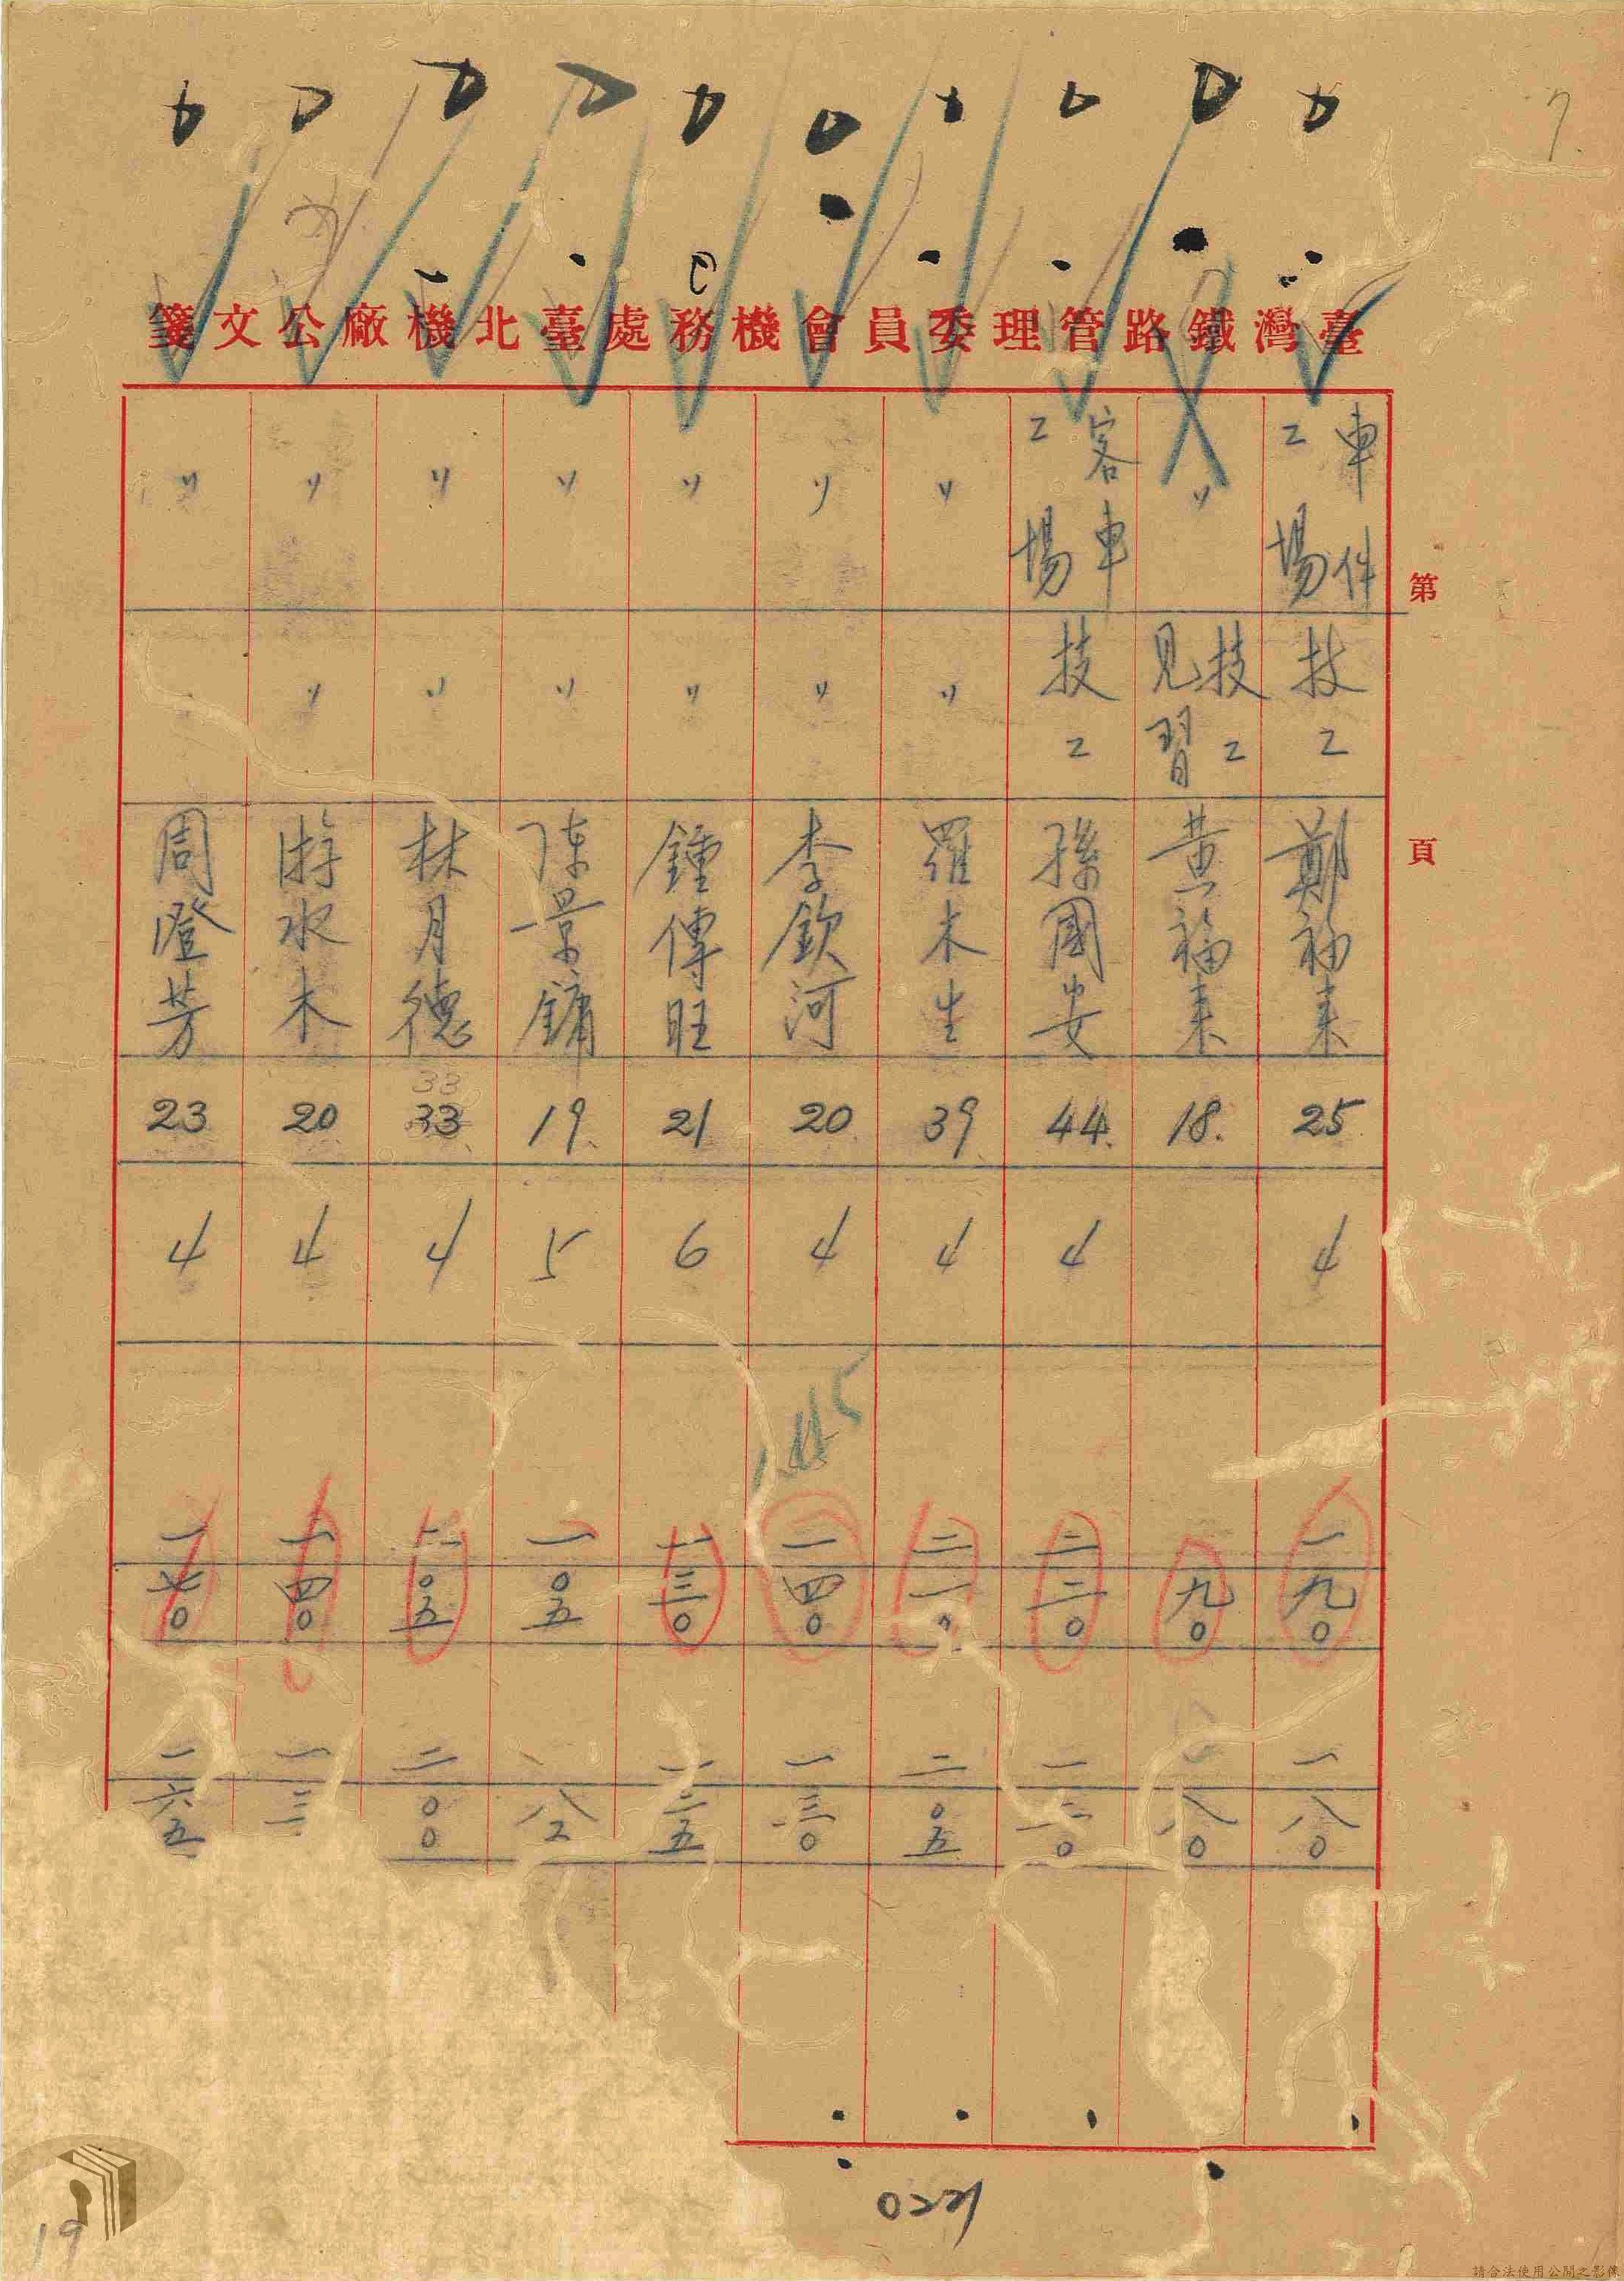 7
臺灣鐵路管理委員會機務處臺北機廠公文箋
第 頁
車件工場 技工 鄭福来 25 4 一九〇 一八〇
〃 技工見習 黄福来 18. 九〇 八〇
客車工場 技工 孫國安 44. 4 二二〇
〃 〃 羅木生 39 4 二一〇 二〇五
〃 〃 李欽河 20 4 145 一四〇 一三〇
〃 〃 鍾傳旺 21 6 一三〇 一二五
〃 〃 陳景鏞 19. 5 一〇五 八五
〃 〃 林月德 33 33 4 二〇五 二〇〇
〃 〃 游水木 20 4 一四〇 一三
〃 周澄芳 23 4 一七〇 一六五
0221
19
請合法使用公開之影像